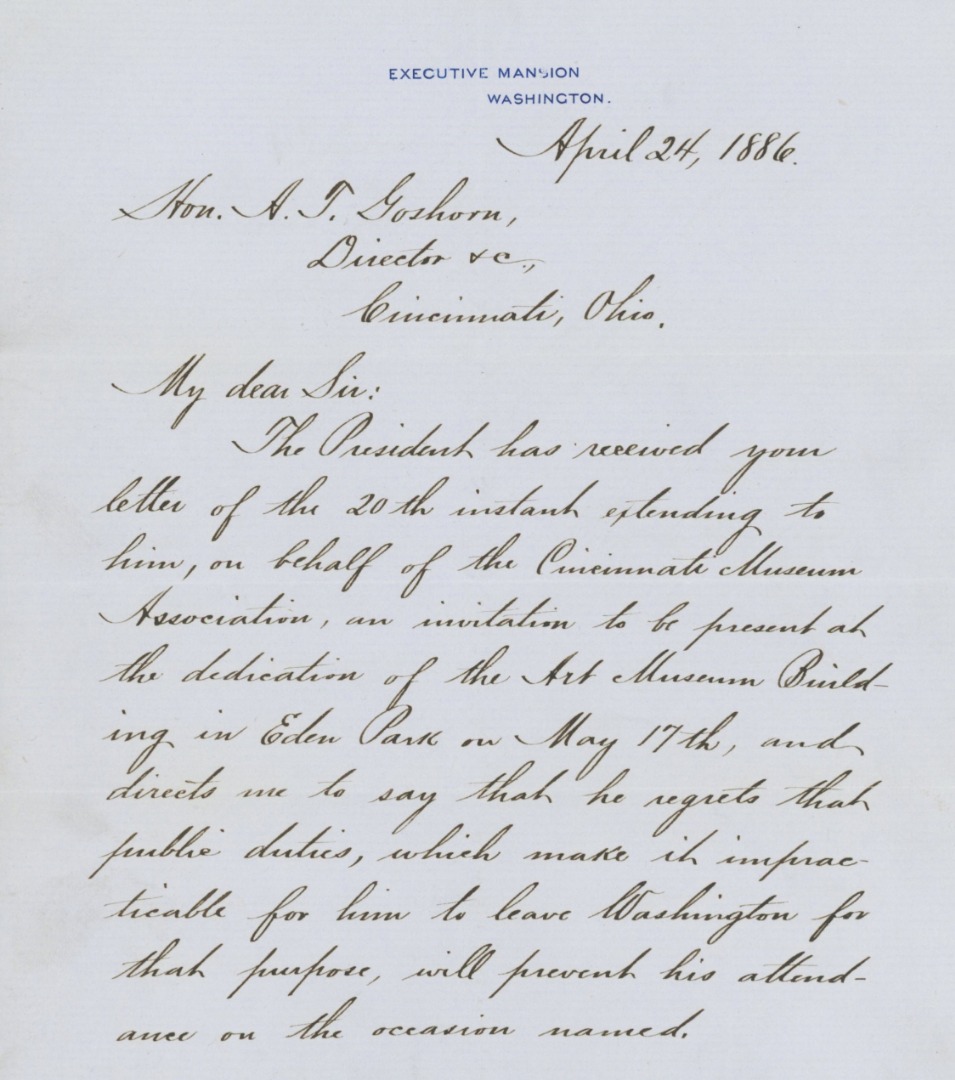 EXECUTIVE MANSION
WASHINGTON.
April 24, 1886.
Hon. A. T. Goshorn,
Director &c.,
Cincinnati, Ohio.
My dear Sir:
The President has received your
letter of the 20th instant extending to
him, on behalf of the Cincinnati Museum
Association, an invitation to be present at
the dedication of the Art Museum Build-
ing in Eden Park on May 17th, and
directs me to say that he regrets that
public duties, which make it imprac-
ticable for him to leave Washington for
that purpose, will prevent his attend-
ance on the occasion named.